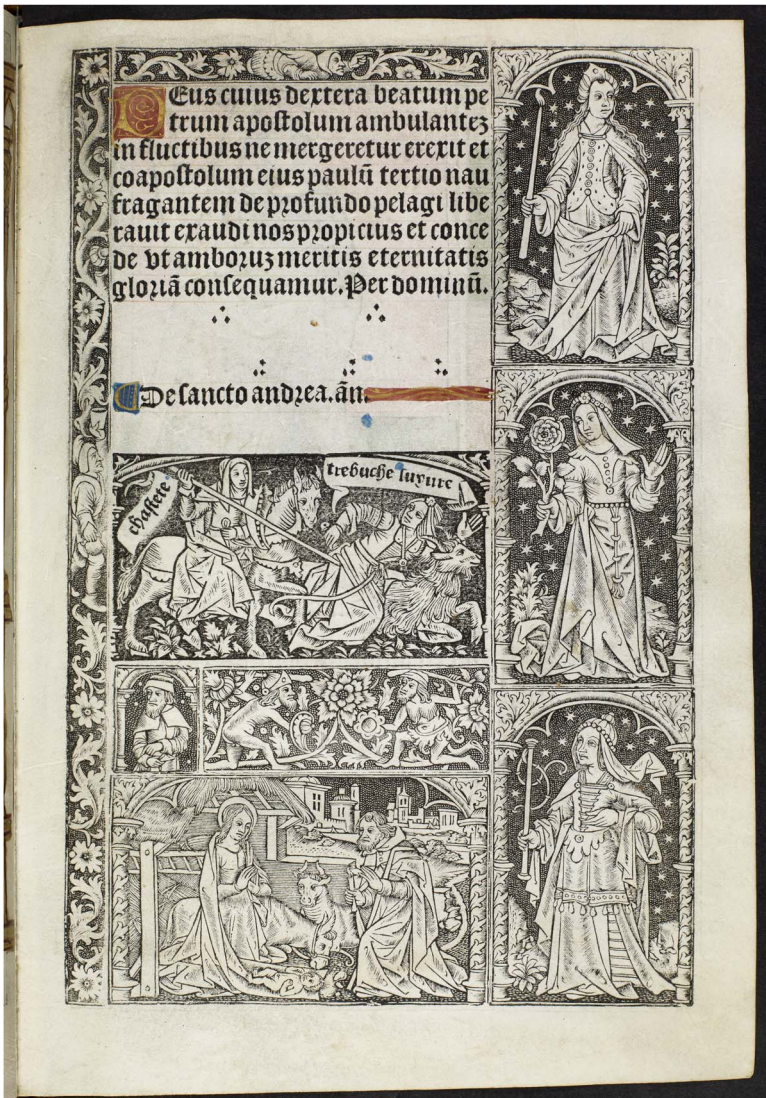 Deus cuius dextera beatum pe
trum apostolum ambulantez
in fluctibus ne mergeretur erexit et
coapostolum eius paulū tertio nau
fragantem de profundo pelagi libe
rauit exaudi nos propicius et conce
de vt amboruz meritis eternitatis
gloriā consequamur. Per dominū.
De sancto andrea. añ.
chastete
trebuche luxure